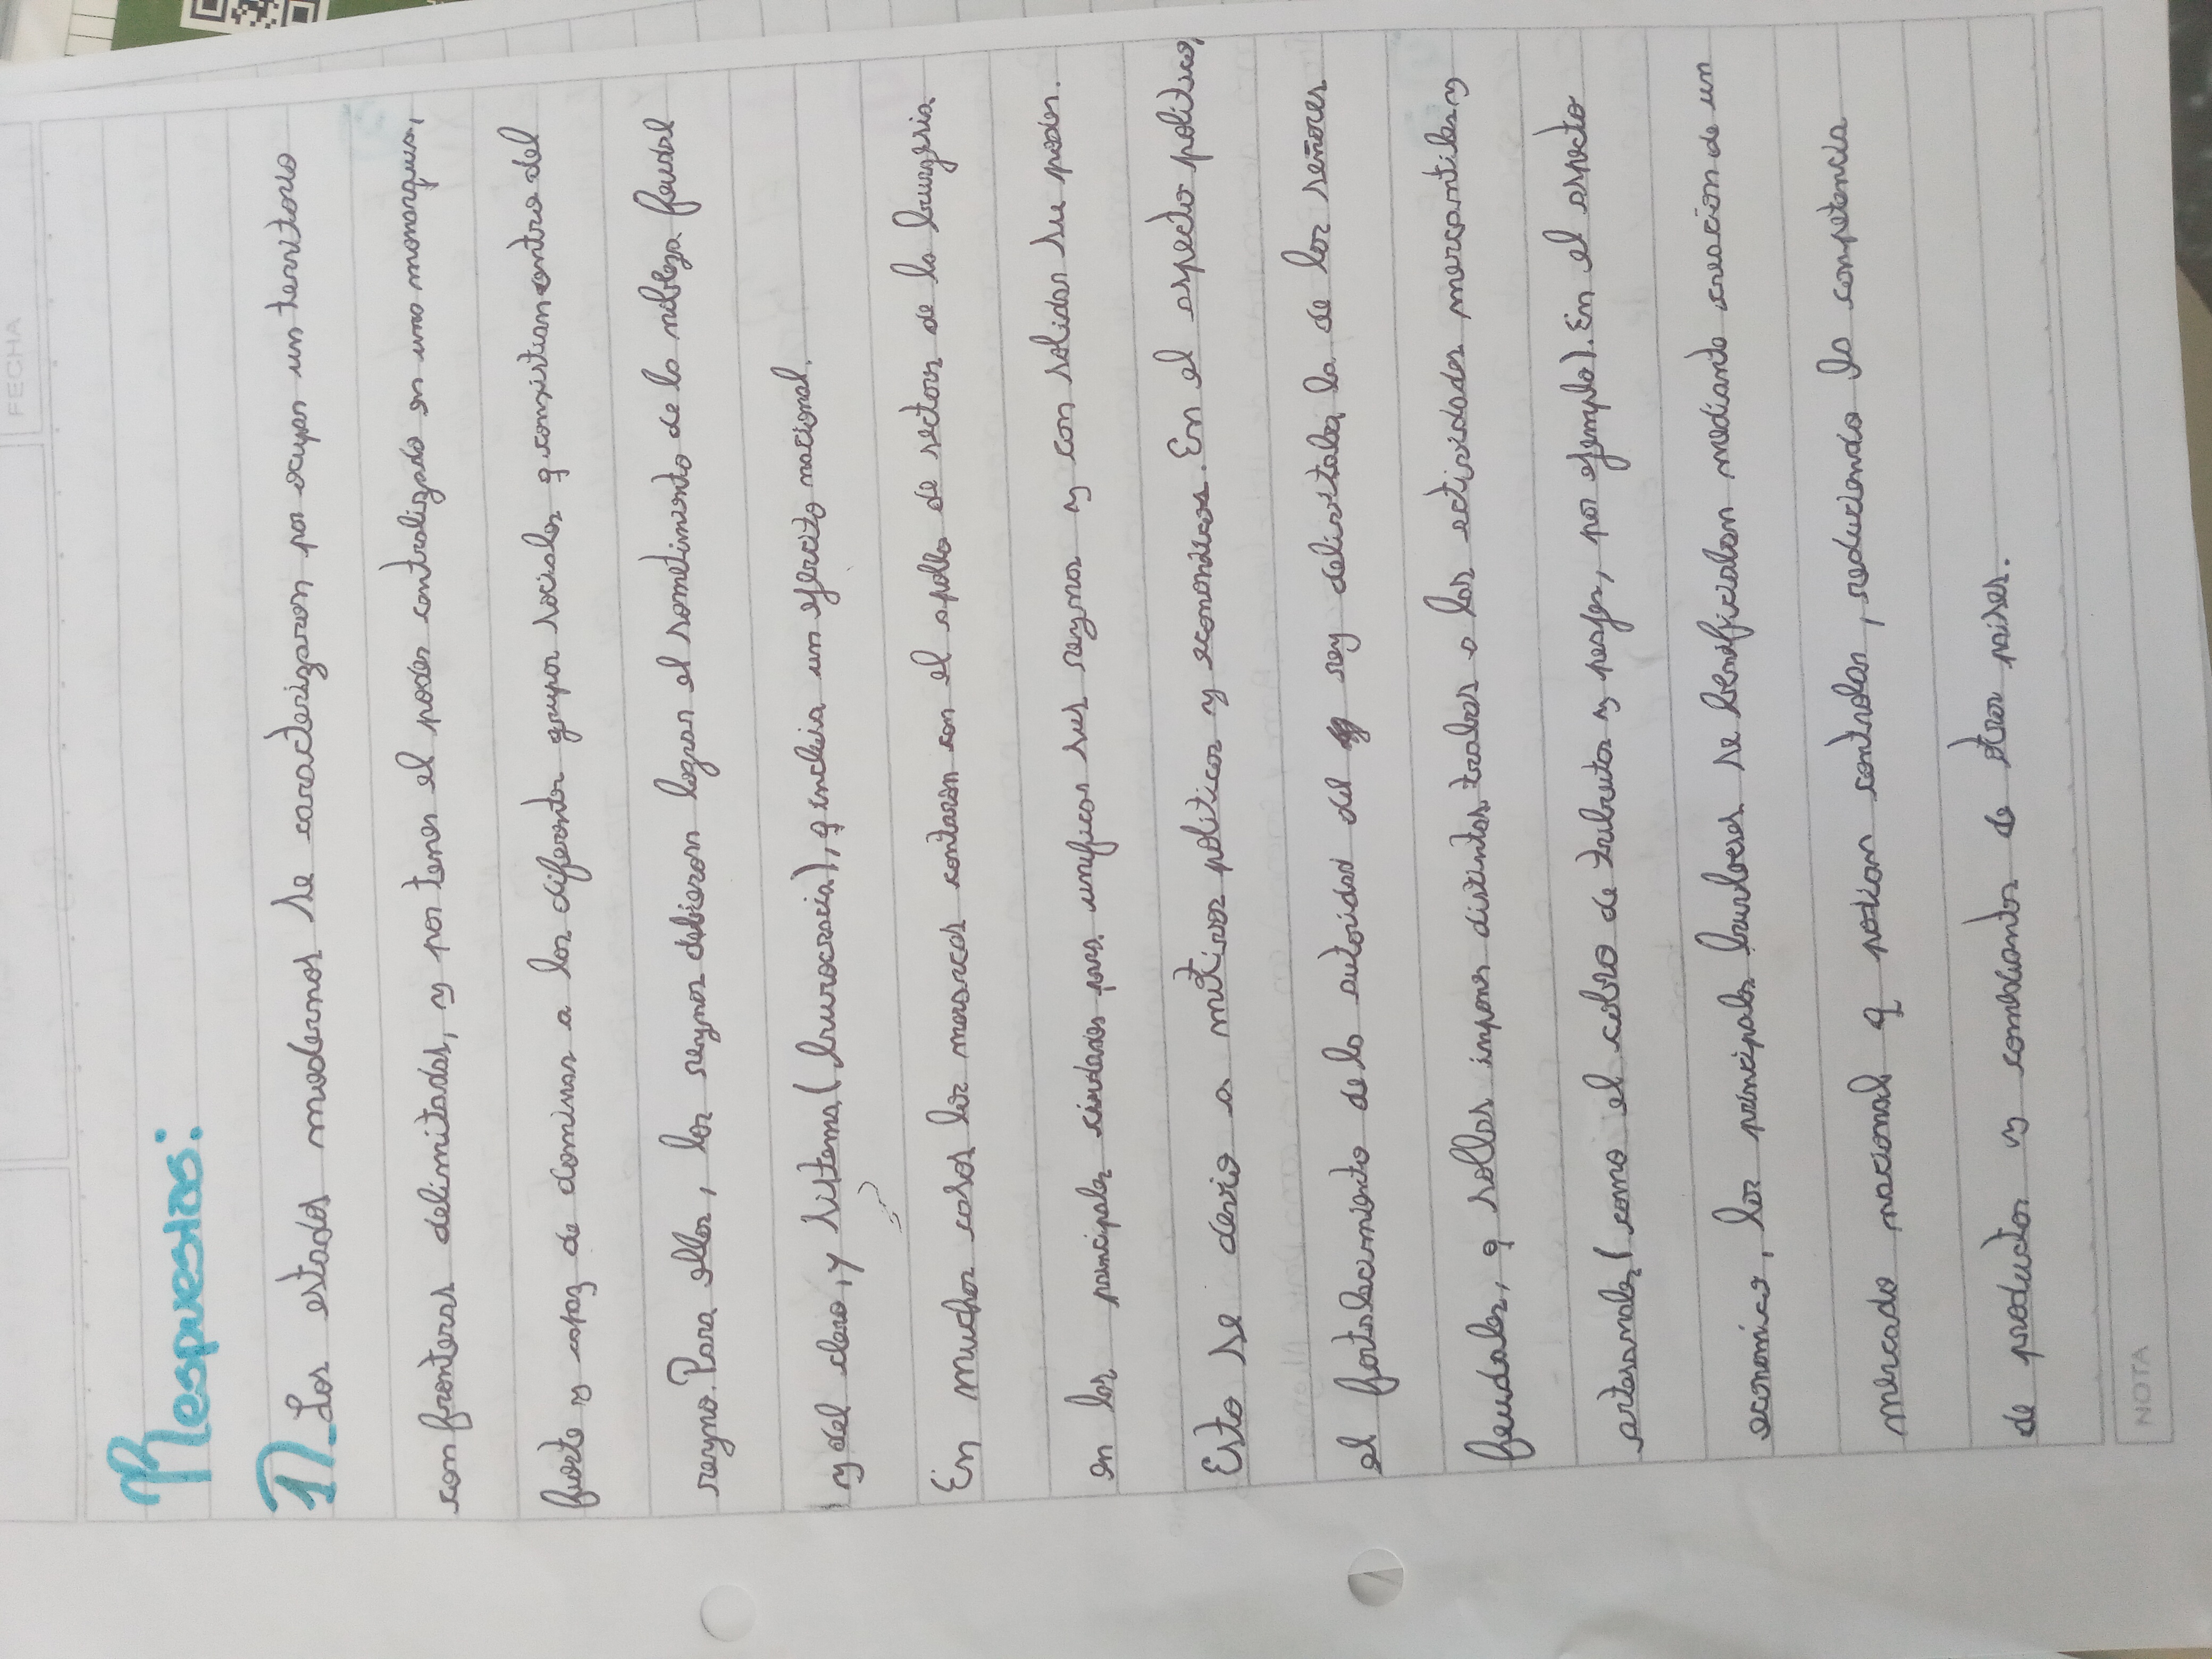 FECHA
Respuestas:
1_ Los estados modernos se caracterizaron por ocupar un territorio
con fronteras delimitadas, y por tener el poder centralizado en una monarquia,
fuerte y capaz de dominar a los diferente grupos sociales q consistian entro del
reyno. Para ellos, los reynos debieron lograr el sometimiento de la nobleza feudal
y del clero, y sistema (burocracia), q incluia un ejercito nacional.
En muchos casos los morarcas contaron con el apollo de sectores de la burgesia
en los principales ciudades para unificar sus reynos y con solidar su poder.
Esto se devio a motivos politicos y economicos. En el aspecto politico,
el fortalecimiento de la autoridad del rey delivitaba la de los señores
feudales, q sollas imponer distintas trabas a las actividades mercantiles y
artesanales (como el cobro de tributos y peajes, por ejemplo). En el aspecto
economico, los principales burgeses se beneficiaban mediante creacion de un
mercado nacional q podian controlar, reduciendo la competencia
de productos y comerciantes de otros paises.
NOTA